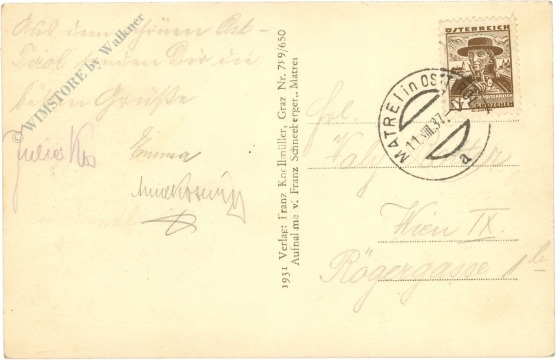 Aus dem schönen Ost-
Tirol senden Dir die
besten Grüße
Emma
© WIMSTORE by Walkner
1931 Verlag: Franz Knollmüller, Graz Nr. 799/650
Aufnahme v. Franz Schneeberger, Matrei
ÖSTERREICH
GROSCHEN
MATREI in OSTTIROL
11.VIII.37
a
Frl
Wien IX.
Rögergasse